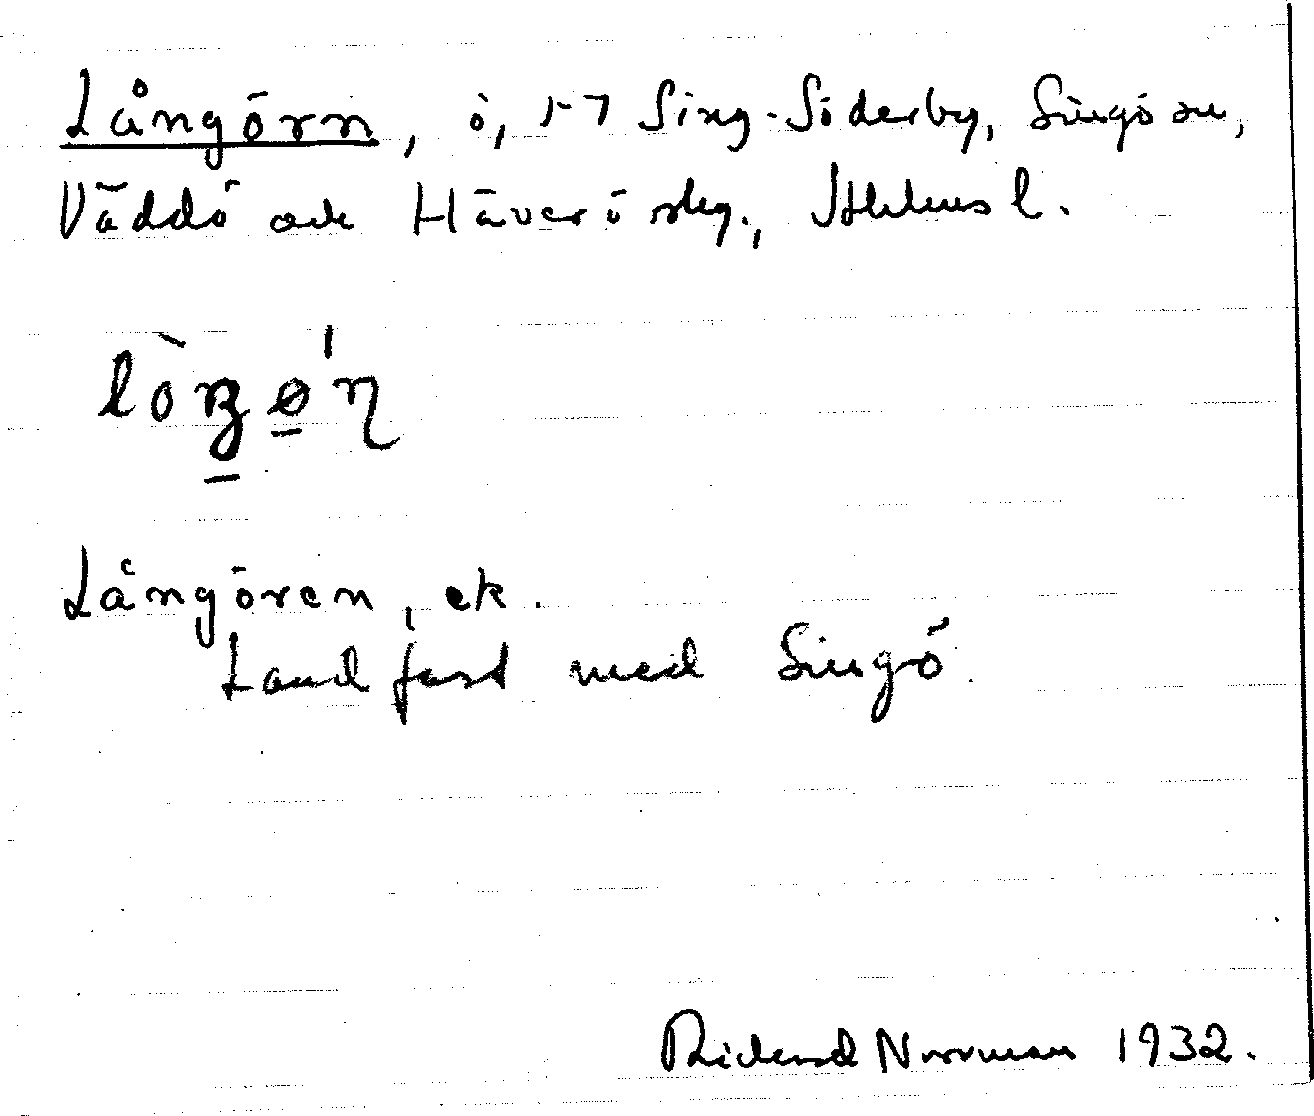 Långörn, ö, 1-7 Sing-Söderby, Singö sn,
Väddö och Häverö skg., Sthlms l.
Långören, ek.
Landfast med Singö
Rickard Norrman 1932.